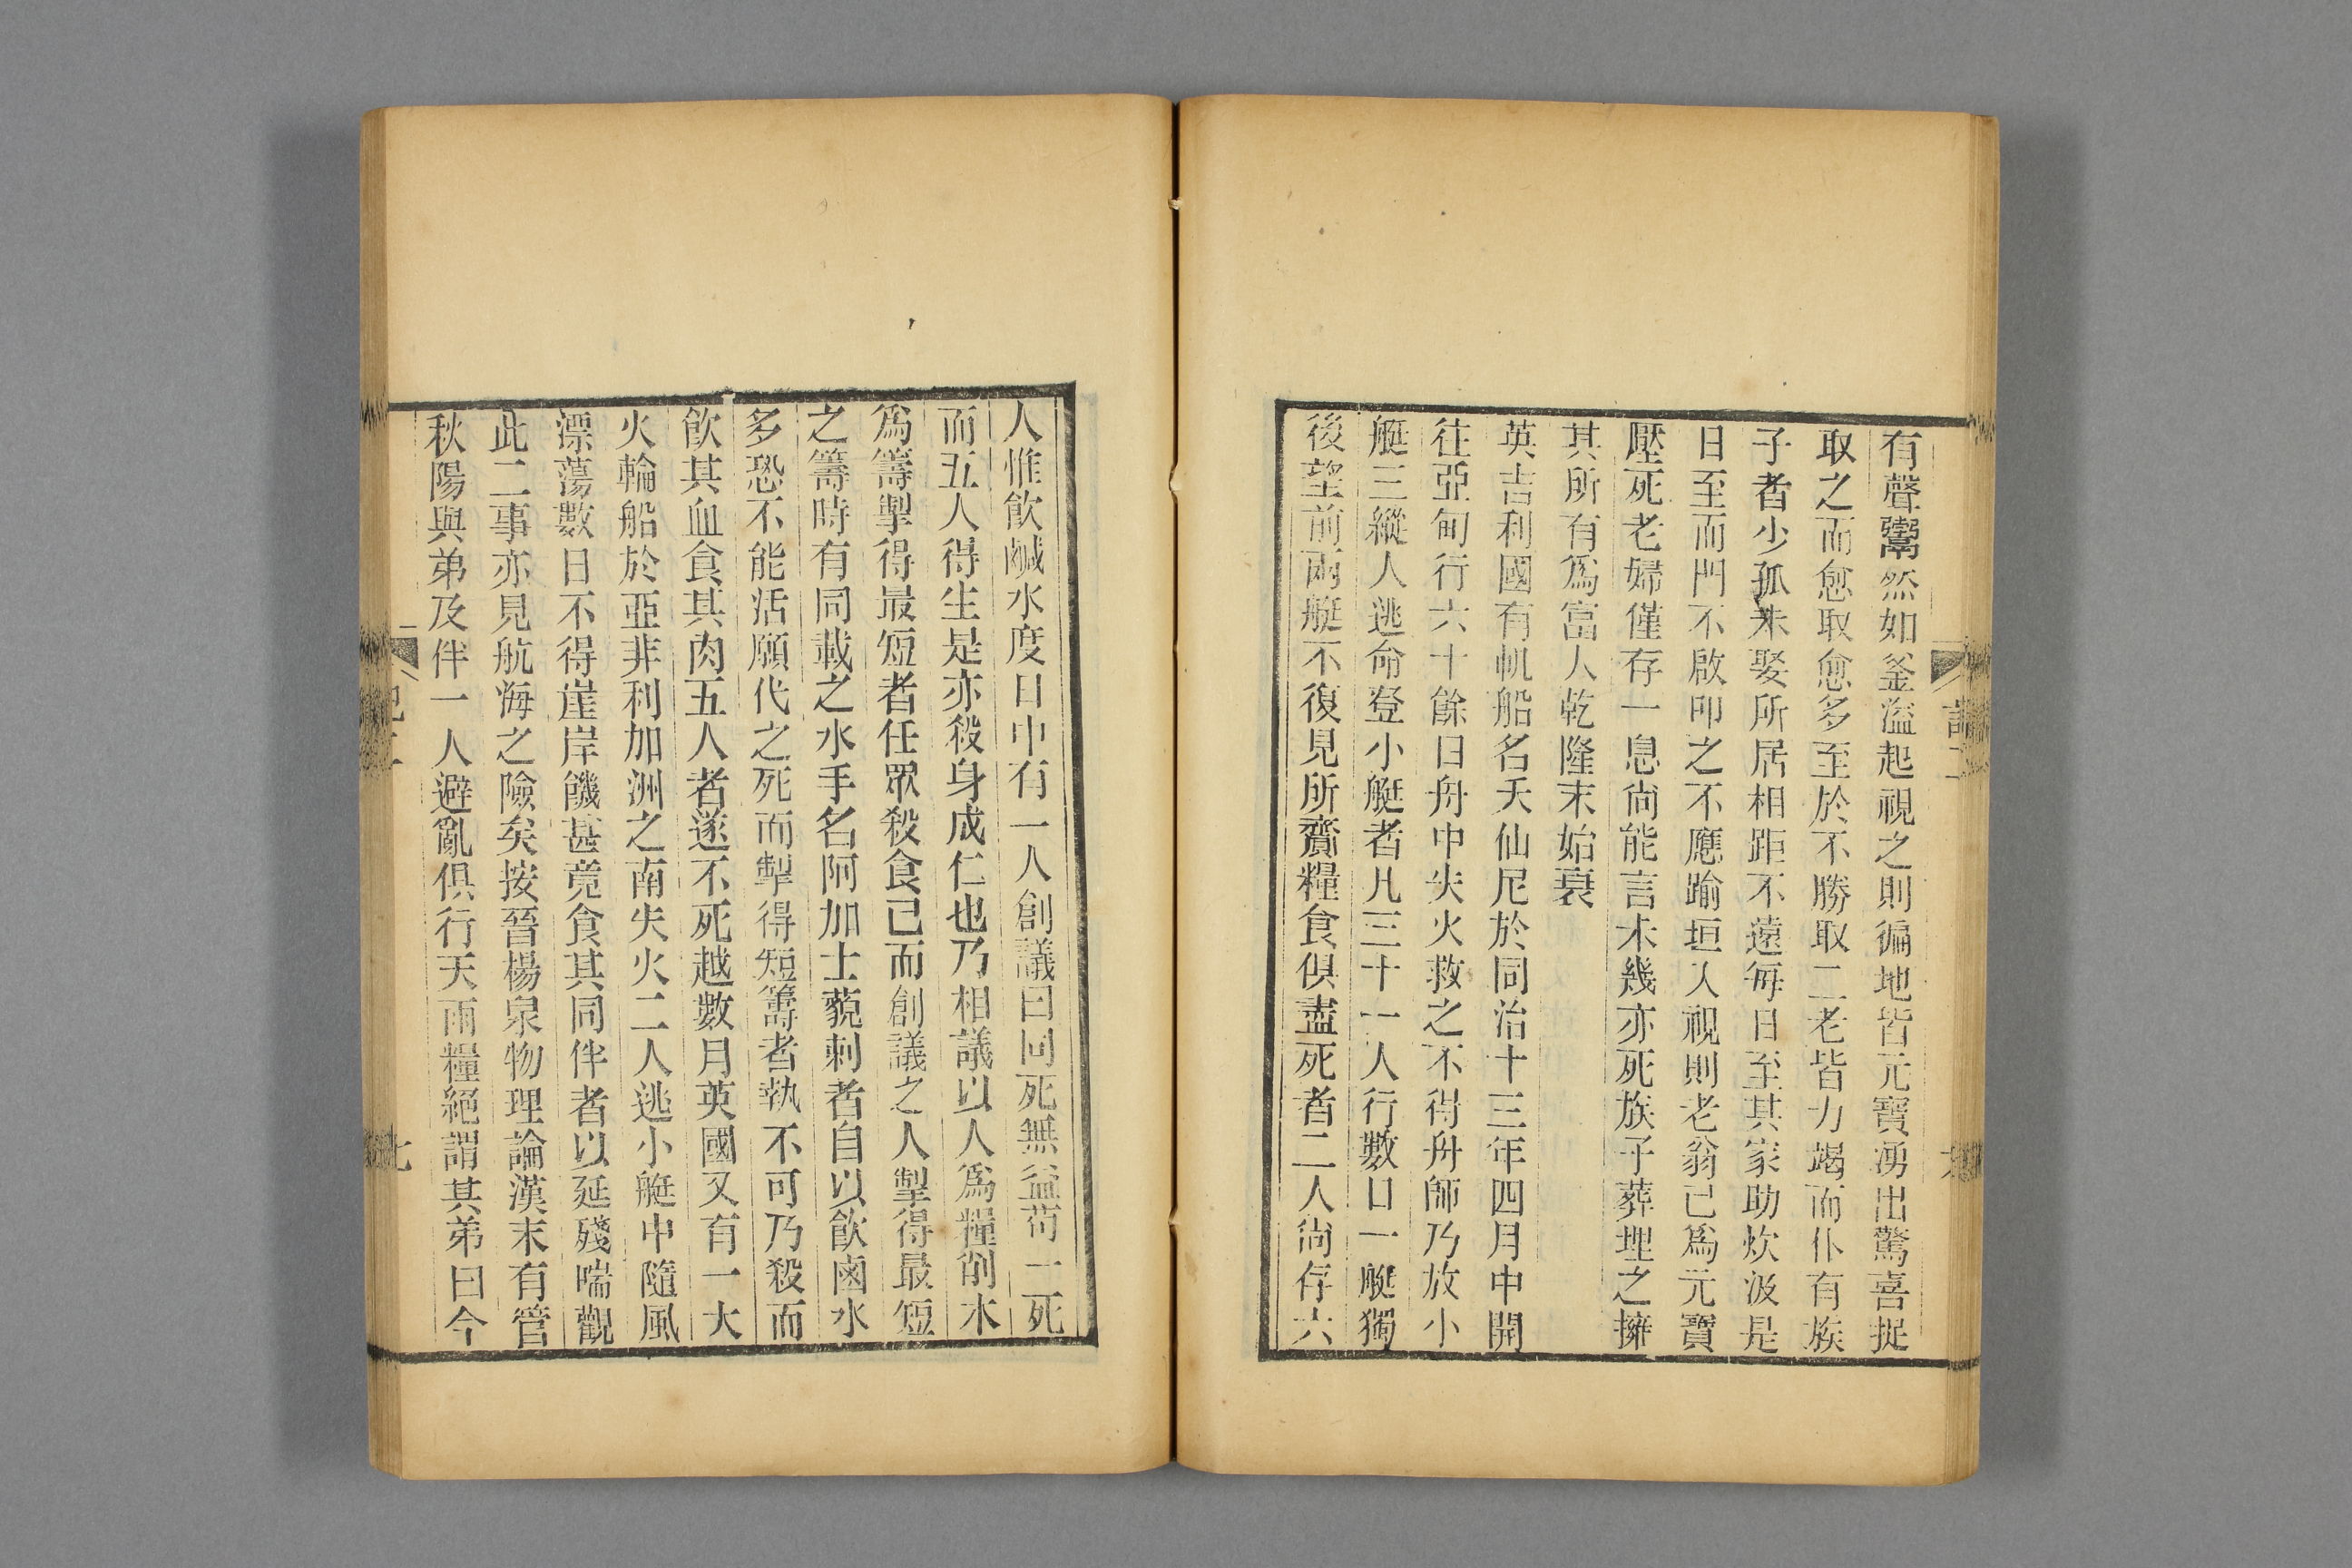 有聲鬻然如釜溢起視之則徧地皆元寶湧出驚喜捉
取之而愈取愈多至於不勝取二老皆力竭而仆有族
子者少孤未娶所居相距不遠每日至其家助炊汲是
日至而門不啟叩之不應踰垣入視則老翁已爲元寶
壓死老婦僅存一息尙能言未幾亦死族子葬埋之擁
其所有爲富人乾隆末始衰
英吉利國有帆船名天仙尼於同治十三年四月中開
往亞甸行六十餘日舟中失火救之不得舟師乃放小
艇三縱人逃命登小艇者凡三十一人行數日一艇獨
後望前兩艇不復見所齎糧食俱盡死者二人尙存六
人惟飮鹹水度日中有一人創議曰同死無益苟一死
而五人得生是亦殺身成仁也乃相議以人爲糧削木
爲籌掣得最短者任眾殺食已而創議之人掣得最短
之籌時有同載之水手名阿加士藐刺者自以飮鹵水
多恐不能活願代之死而掣得短籌者執不可乃殺而
飮其血食其肉五人者遂不死越數月英國又有一大
火輪船於亞非利加洲之南失火二人逃小艇中隨風
漂蕩數日不得崖岸饑甚竟食其同伴者以延殘喘觀
此二事亦見航海之險矣按晉楊泉物理論漢末有管
秋陽與弟及伴一人避亂俱行天雨糧絕謂其弟曰今